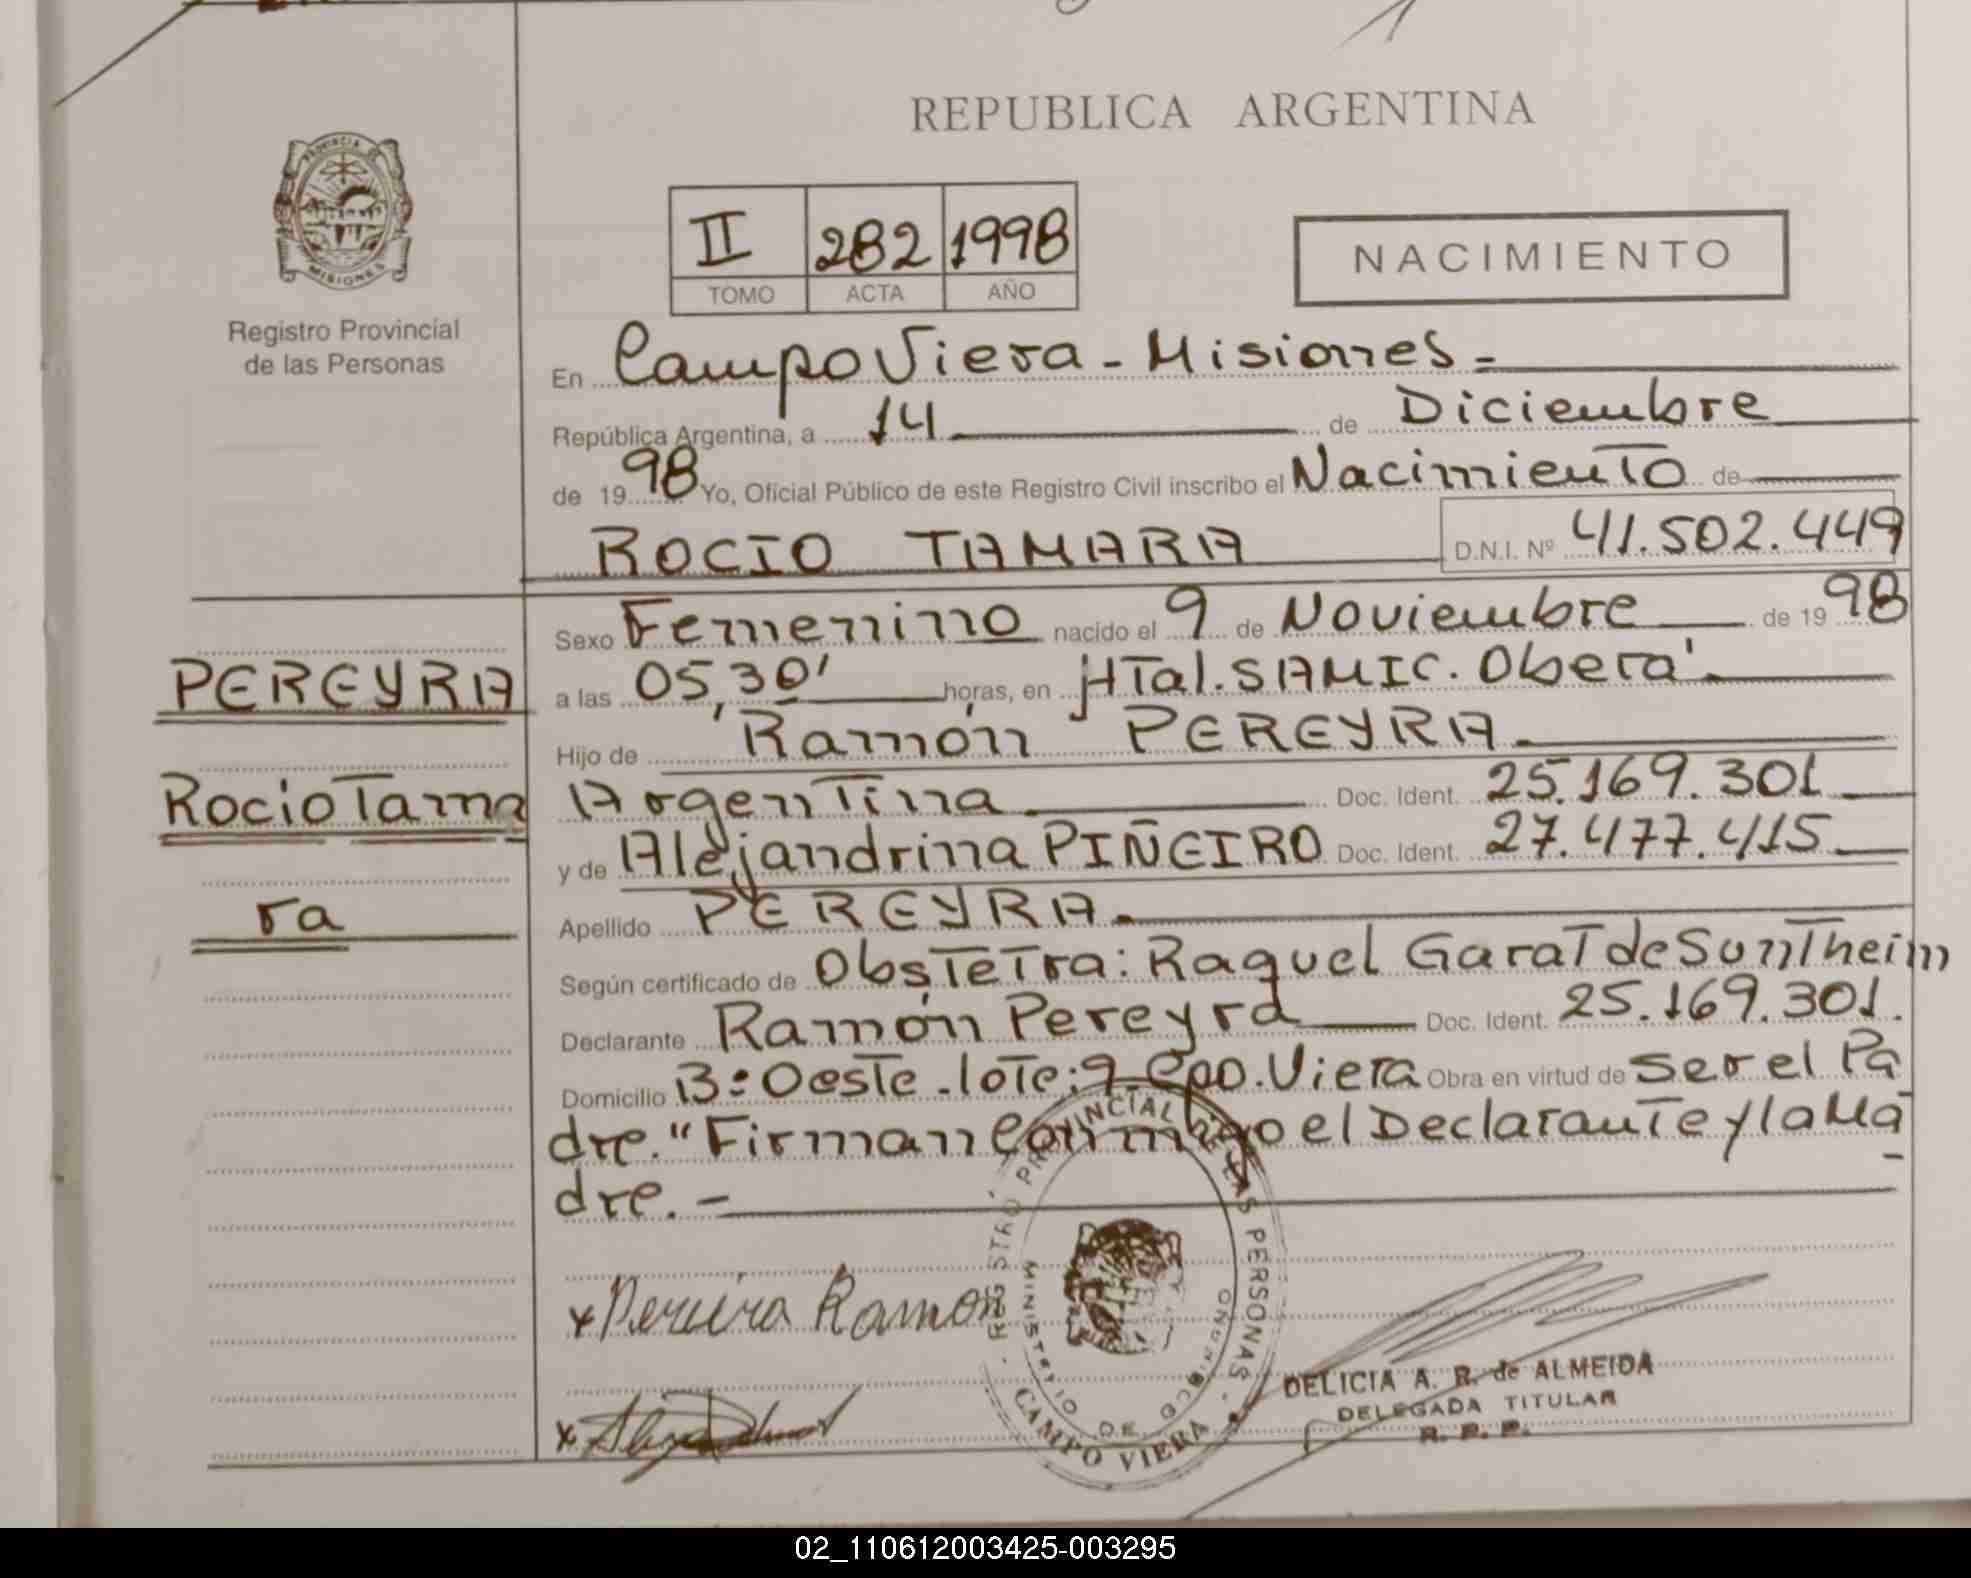 REPUBLICA ARGENTINA
PROVINCIA DE
MISIONES
Registro Provincial
de las Personas
II 282 1998
TOMO ACTA AÑO
NACIMIENTO
En Campo Viera - Misiones =
República Argentina, a 14 de Diciembre
de 19 98 Yo, Oficial Público de este Registro Civil inscribo el Nacimiento de
ROCIO TAMARA D.N.I. Nº 41.502.449
Sexo Femenino nacido el 9 de Noviembre de 19 98
PEREYRA
a las 05,30' horas, en HTal. SAMIC. Oberá.
Hijo de Ramón PEREYRA.
Rocio Tama
Argentina Doc. Ident. 25.169.301
y de Alejandrina PIÑEIRO Doc. Ident. 27.477.415
ra
Apellido PEREYRA.
Según certificado de Obstetra: Raquel Garat de Sontheim
Declarante Ramón Pereyra Doc. Ident. 25.169.301.
Domicilio B: Oeste - lote: 9 - Cpo. Viera Obra en virtud de ser el Pa
dre. "Firman Conmigo el Declarante y la Ma-
dre. -
x Pereira Ramon
REGISTRO PROVINCIAL DE LAS PERSONAS
MINISTERIO DE GOBIERNO
CAMPO VIERA
DELICIA A. R. de ALMEIDA
DELEGADA TITULAR
R. P. P.
02_110612003425-003295